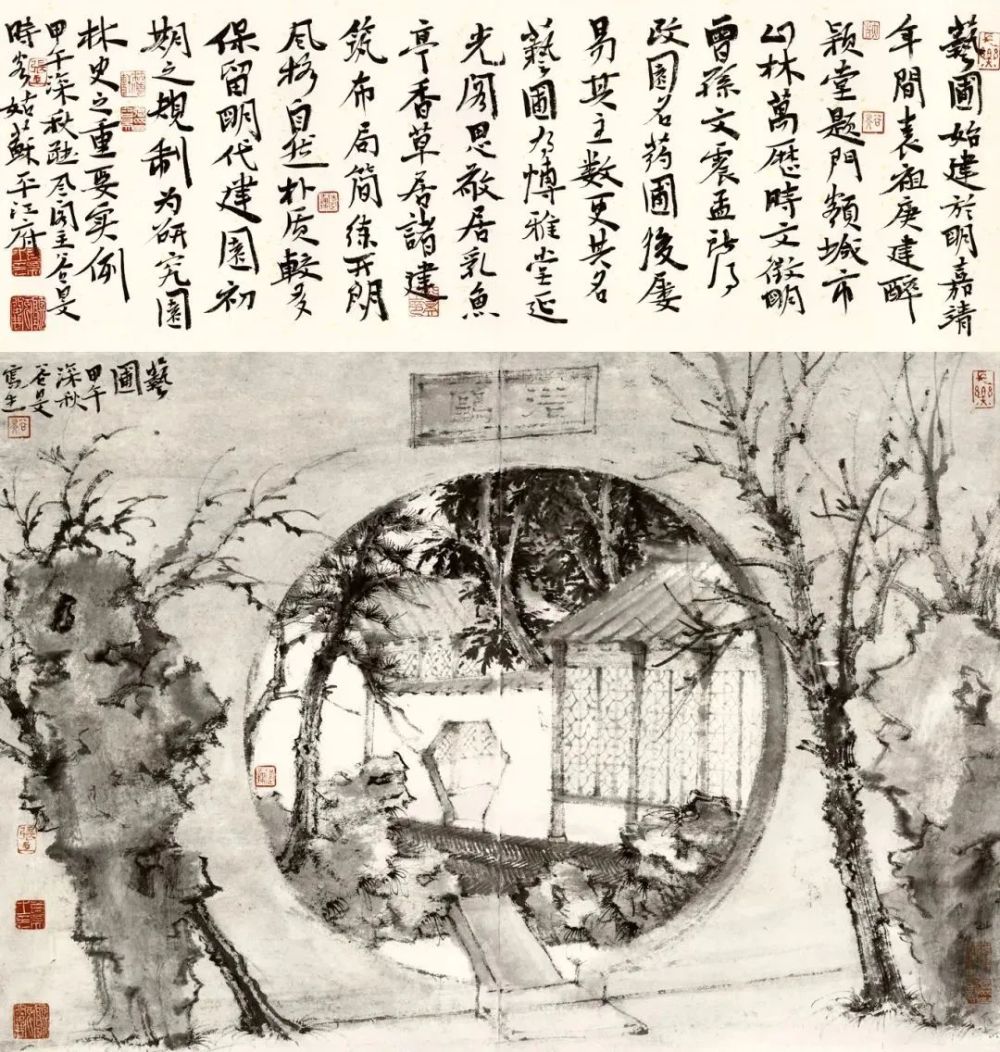 藝圃始建於明嘉靖
年間袁祖庚建醉
穎堂題門額城市
山林萬歷時文徵明
曾孫文震孟得
改園名葯圃後屡
易其主數更其名
藝圃有愽雅堂延
光阁思敬居乳魚
亭香草居諸建
筑布局简练开朗
风格自然朴质較多
保留明代建園初
期之规制为研究園
林史之重要实例
甲午深秋聽风阁主谷旻
時客姑蘇平江府
浴鷗
藝圃
甲午
深秋
谷旻
寫生